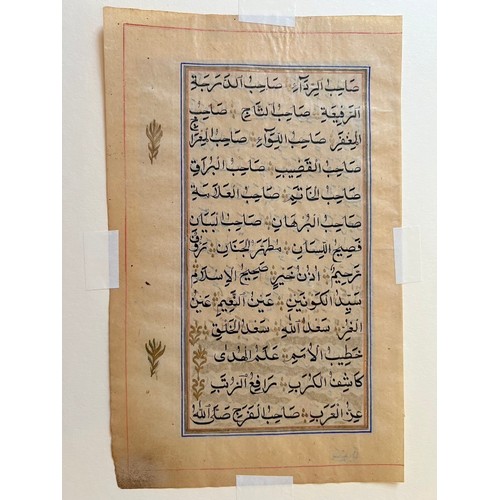 صَاحِبُ الرِّدَآءِ صَاحِبُ الدَّرَجَةِ
الرَّفِيعَةِ صَاحِبُ التَّاجِ صَاحِبُ
الْمِغْفَرِ صَاحِبُ اللِّوَآءِ صَاحِبُ الْمِعْرَاجِ
صَاحِبُ الْقَضِيبِ صَاحِبُ الْبُرَاقِ
صَاحِبُ الْخَاتَمِ صَاحِبُ الْعَلَامَةِ
صَاحِبُ الْبُرْهَانِ صَاحِبُ الْبَيَانِ
فَصِيحُ اللِّسَانِ مُطَهَّرُ الْجَنَانِ رَؤُفٌ
رَحِيمٌ اُذُنُ خَيْرٍ صَحِيحُ الْاِسْلَامِ
سَيِّدُ الْكَوْنَيْنِ عَيْنُ النَّعِيمِ عَيْنُ
الْغُرِّ سَعْدُ اللهِ سَعْدُ الْخَلْقِ
خَطِيبُ الْاُمَمِ عَلَمُ الْهُدَى
كَاشِفُ الْكُرَبِ رَافِعُ الرُّتَبِ
عِزُّ الْعَرَبِ صَاحِبُ الْفَرَجِ صَلَّى اللهُ